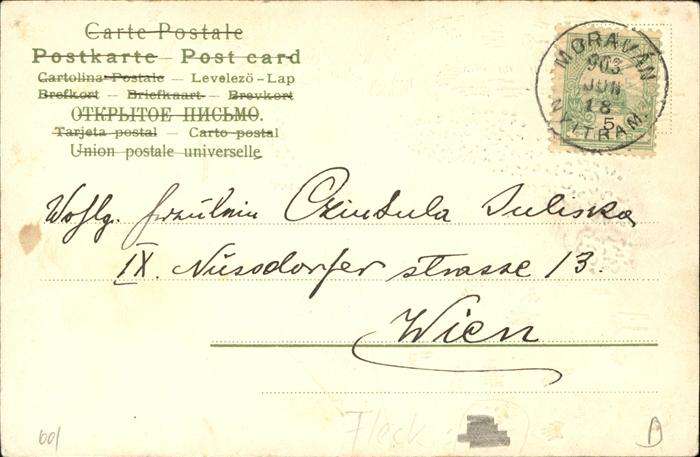 Carte Postale
Postkarte - Post card
Cartolina Postale - Levelezö-Lap
Brefkort - Briefkaart - Brevkort
ОТКРЫТОЕ ПИСЬМО.
Tarjeta postal - Carto postal
Union postale universelle
MORAVÁN
903
JUN
18
5
NYITRAM.
Wohlg. Fräulein Czintula Juliska
IX. Nussdorfer strasse 13.
Wien
60/
Fleck
D